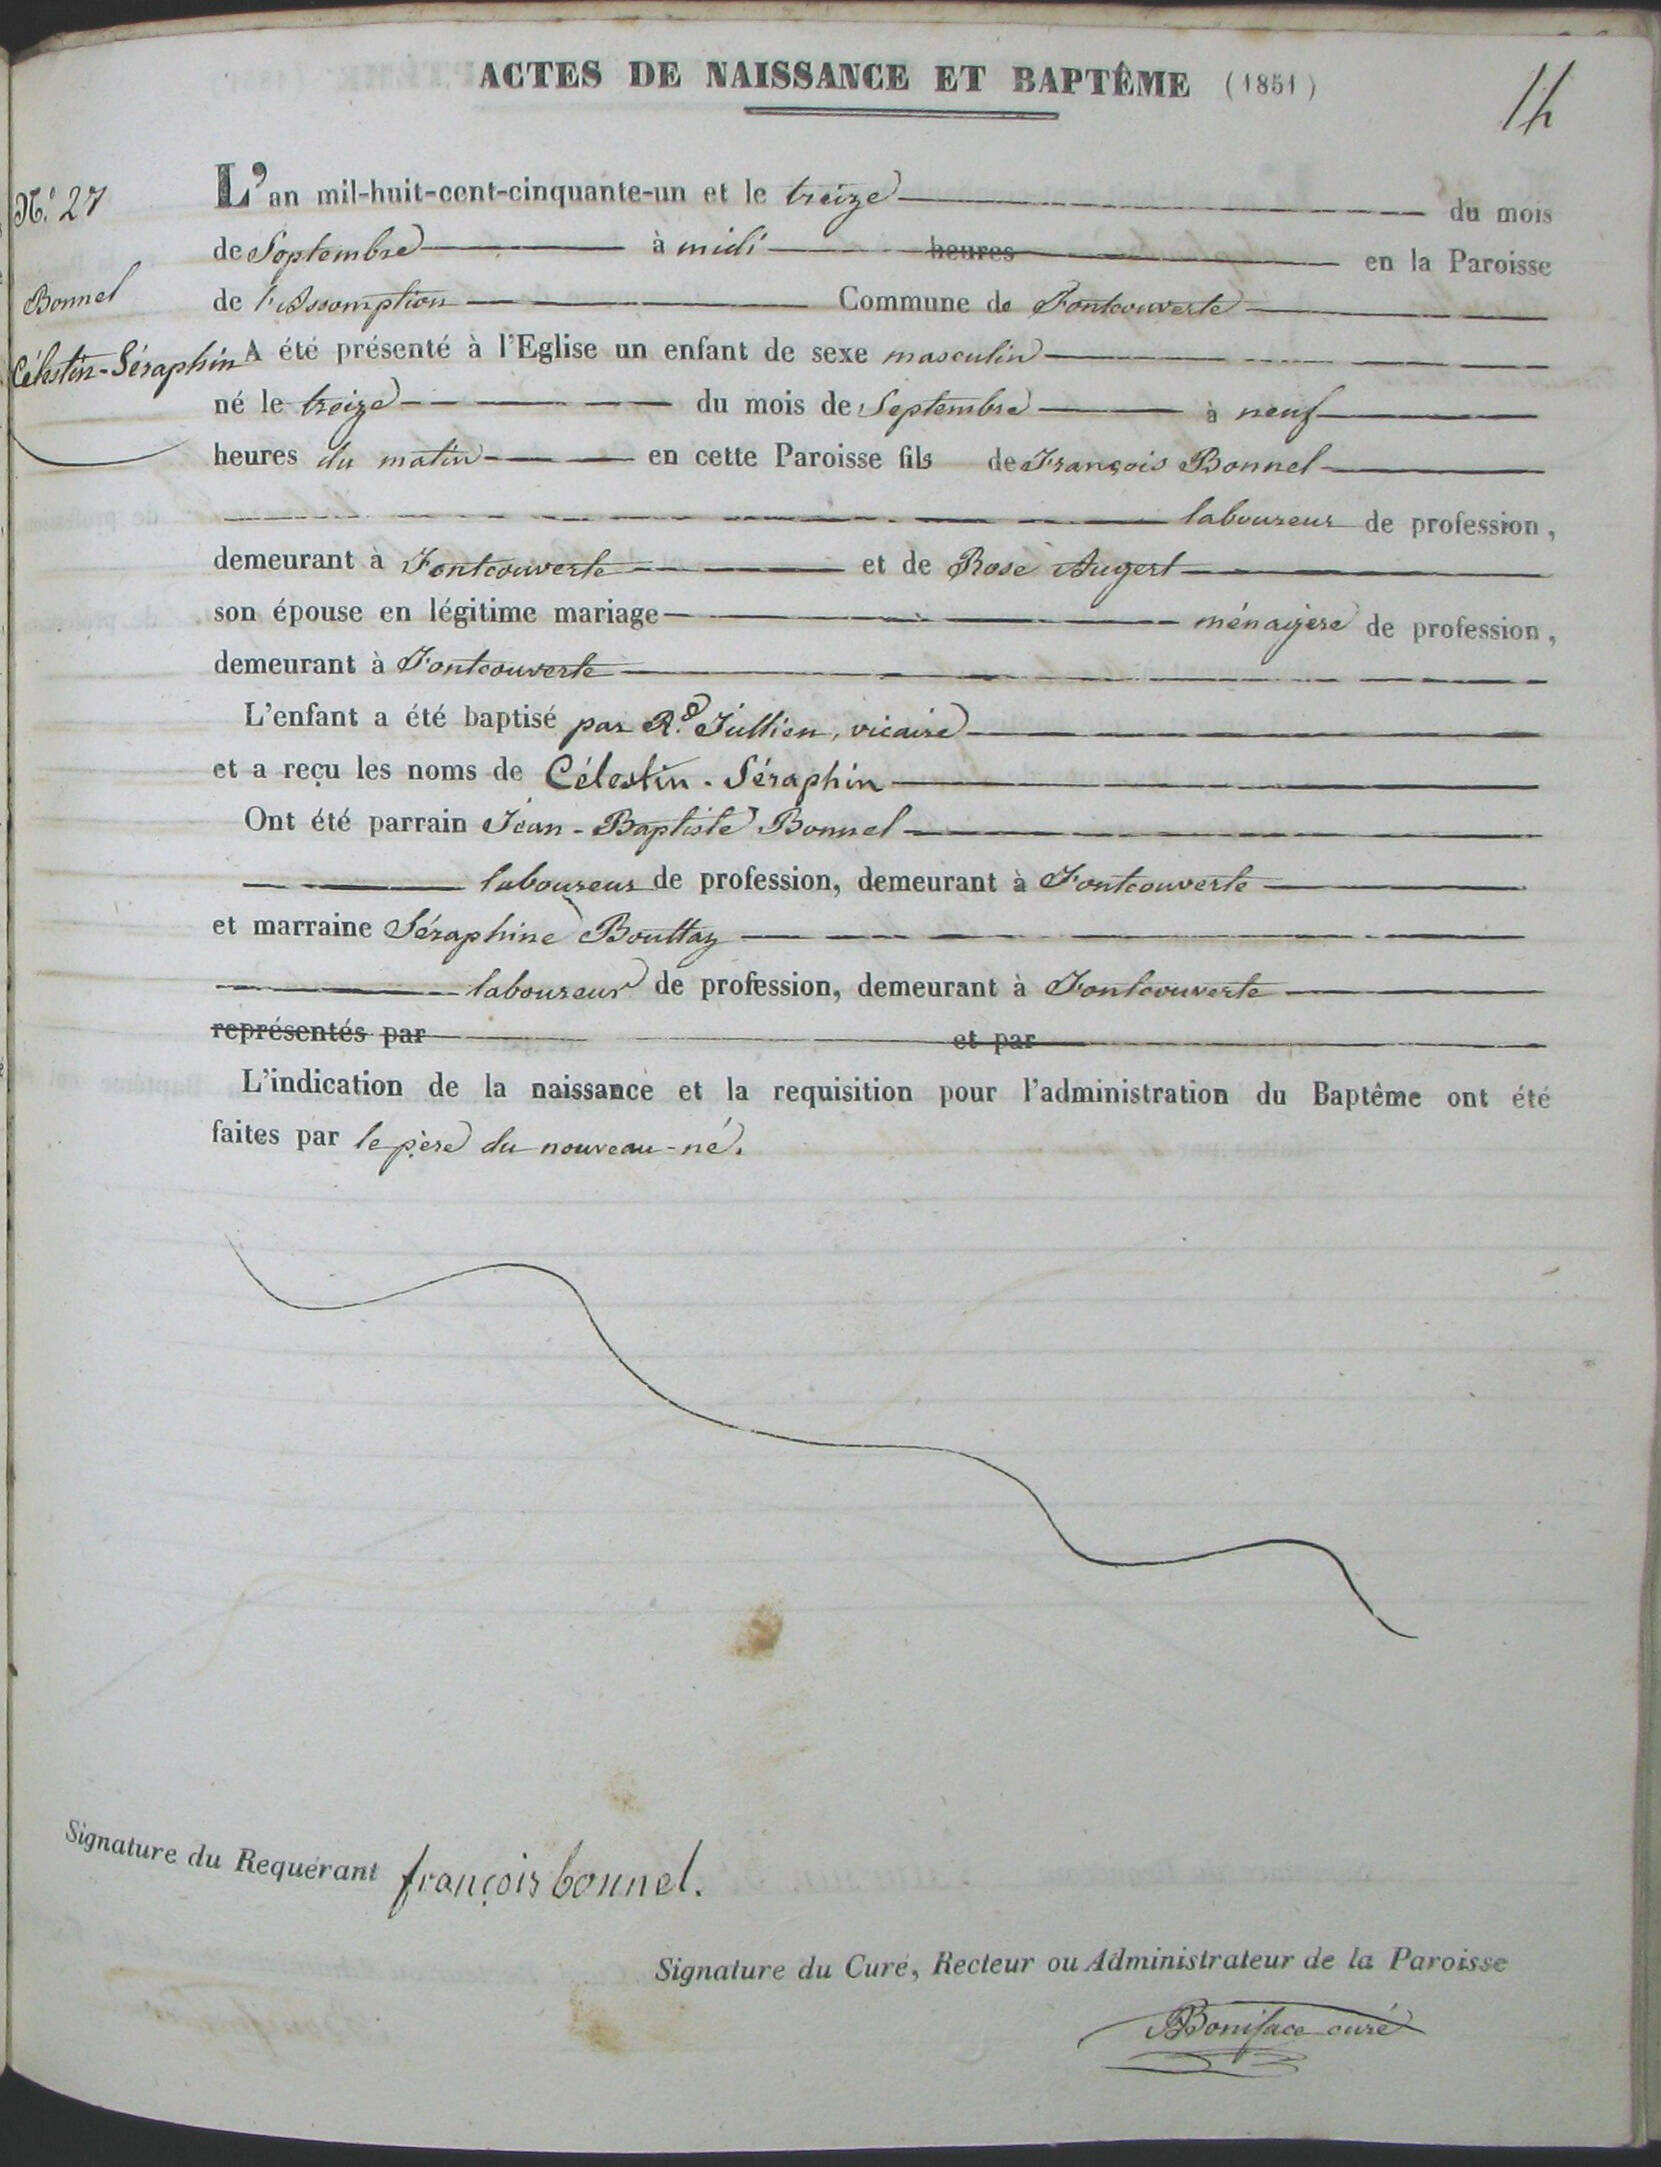 ACTES DE NAISSANCE ET BAPTÊME (1851)
14
N.° 27
Bonnel
Célestin-Séraphin
L'an mil-huit-cent-cinquante-un et le treize du mois
de Septembre à midi heures en la Paroisse
de l'Assomption Commune de Fontcouverte
A été présenté à l'Eglise un enfant de sexe masculin
né le treize du mois de Septembre à neuf
heures du matin en cette Paroisse fils de François Bonnel
laboureur de profession,
demeurant à Fontcouverte et de Rose Augert
son épouse en légitime mariage ménagère de profession,
demeurant à Fontcouverte
L'enfant a été baptisé par R.d Jullien, vicaire
et a reçu les noms de Célestin-Séraphin
Ont été parrain Jean-Baptiste Bonnel
laboureur de profession, demeurant à Fontcouverte
et marraine Séraphine Bouttaz
laboureur de profession, demeurant à Fontcouverte
représentés par et par
L'indication de la naissance et la requisition pour l'administration du Baptême ont été
faites par le père du nouveau-né.
Signature du Requérant françois bonnel.
Signature du Curé, Recteur ou Administrateur de la Paroisse
Boniface curé